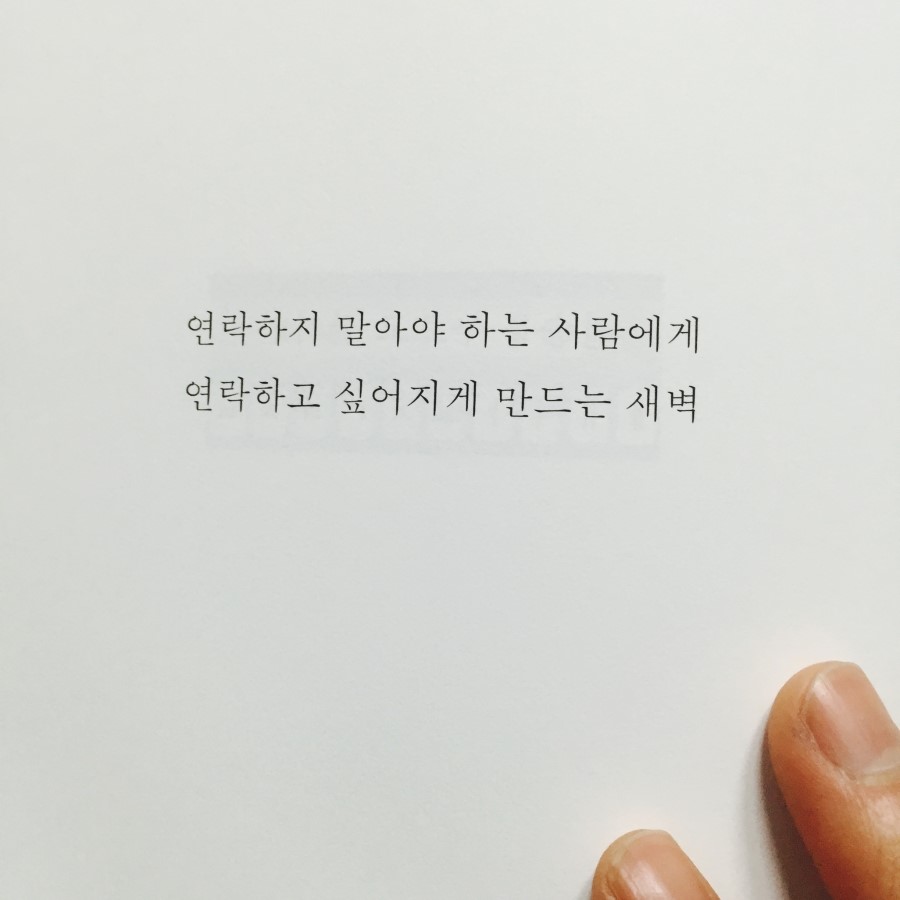 연락하지 말아야 하는 사람에게
연락하고 싶어지게 만드는 새벽